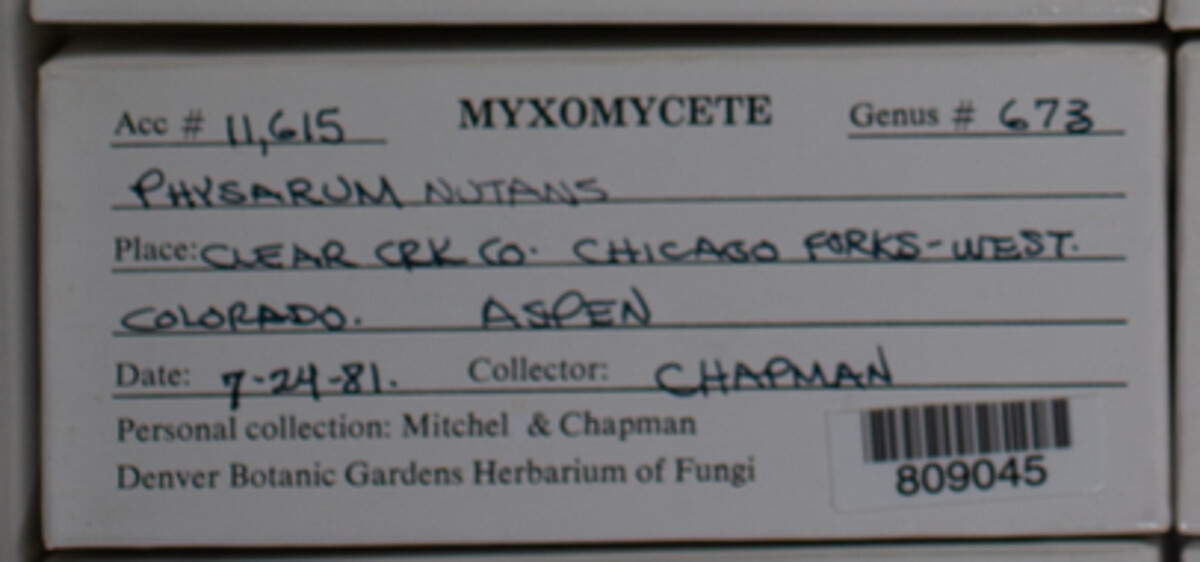 Acc # 11,615 MYXOMYCETE Genus # 673
PHYSARUM NUTANS
Place: CLEAR CRK CO. CHICAGO FORKS-WEST.
COLORADO. ASPEN
Date: 7-24-81. Collector: CHAPMAN
Personal collection: Mitchel & Chapman
Denver Botanic Gardens Herbarium of Fungi
809045